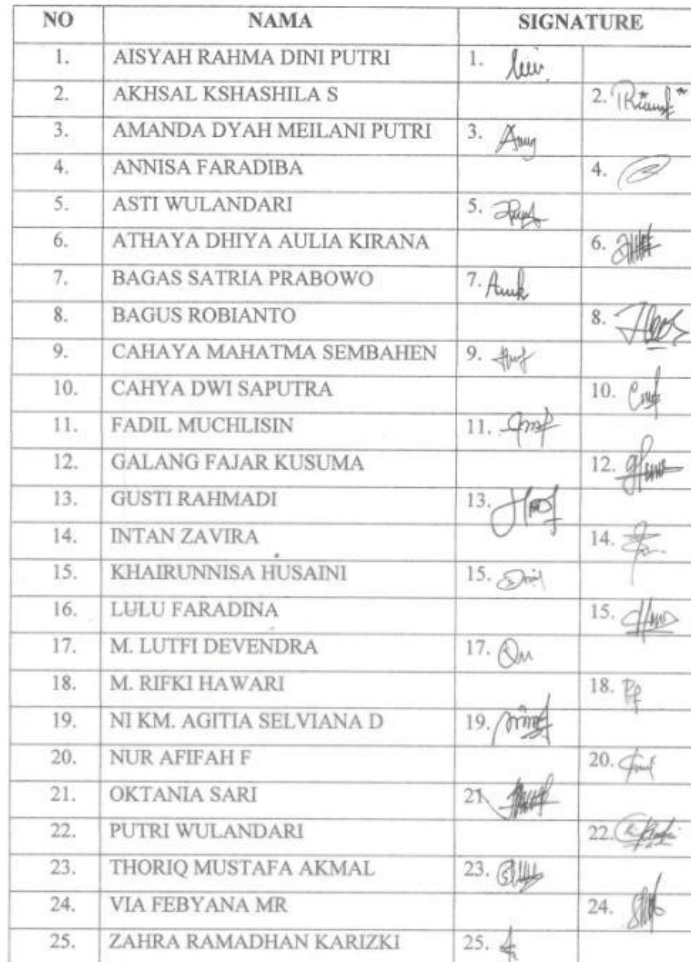 NO NAMA SIGNATURE
1. AISYAH RAHMA DINI PUTRI 1.
2. AKHSAL KSHASHILA S 2.
3. AMANDA DYAH MEILANI PUTRI 3.
4. ANNISA FARADIBA 4.
5. ASTI WULANDARI 5.
6. ATHAYA DHIYA AULIA KIRANA 6.
7. BAGAS SATRIA PRABOWO 7.
8. BAGUS ROBIANTO 8.
9. CAHAYA MAHATMA SEMBAHEN 9.
10. CAHYA DWI SAPUTRA 10.
11. FADIL MUCHLISIN 11.
12. GALANG FAJAR KUSUMA 12.
13. GUSTI RAHMADI 13.
14. INTAN ZAVIRA 14.
15. KHAIRUNNISA HUSAINI 15.
16. LULU FARADINA 15.
17. M. LUTFI DEVENDRA 17.
18. M. RIFKI HAWARI 18.
19. NI KM. AGITIA SELVIANA D 19.
20. NUR AFIFAH F 20.
21. OKTANIA SARI 21
22. PUTRI WULANDARI 22.
23. THORIQ MUSTAFA AKMAL 23.
24. VIA FEBYANA MR 24.
25. ZAHRA RAMADHAN KARIZKI 25.